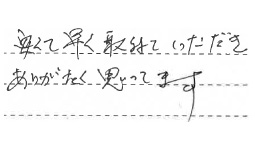 安くて早く取付ていただき
ありがたく思ってます